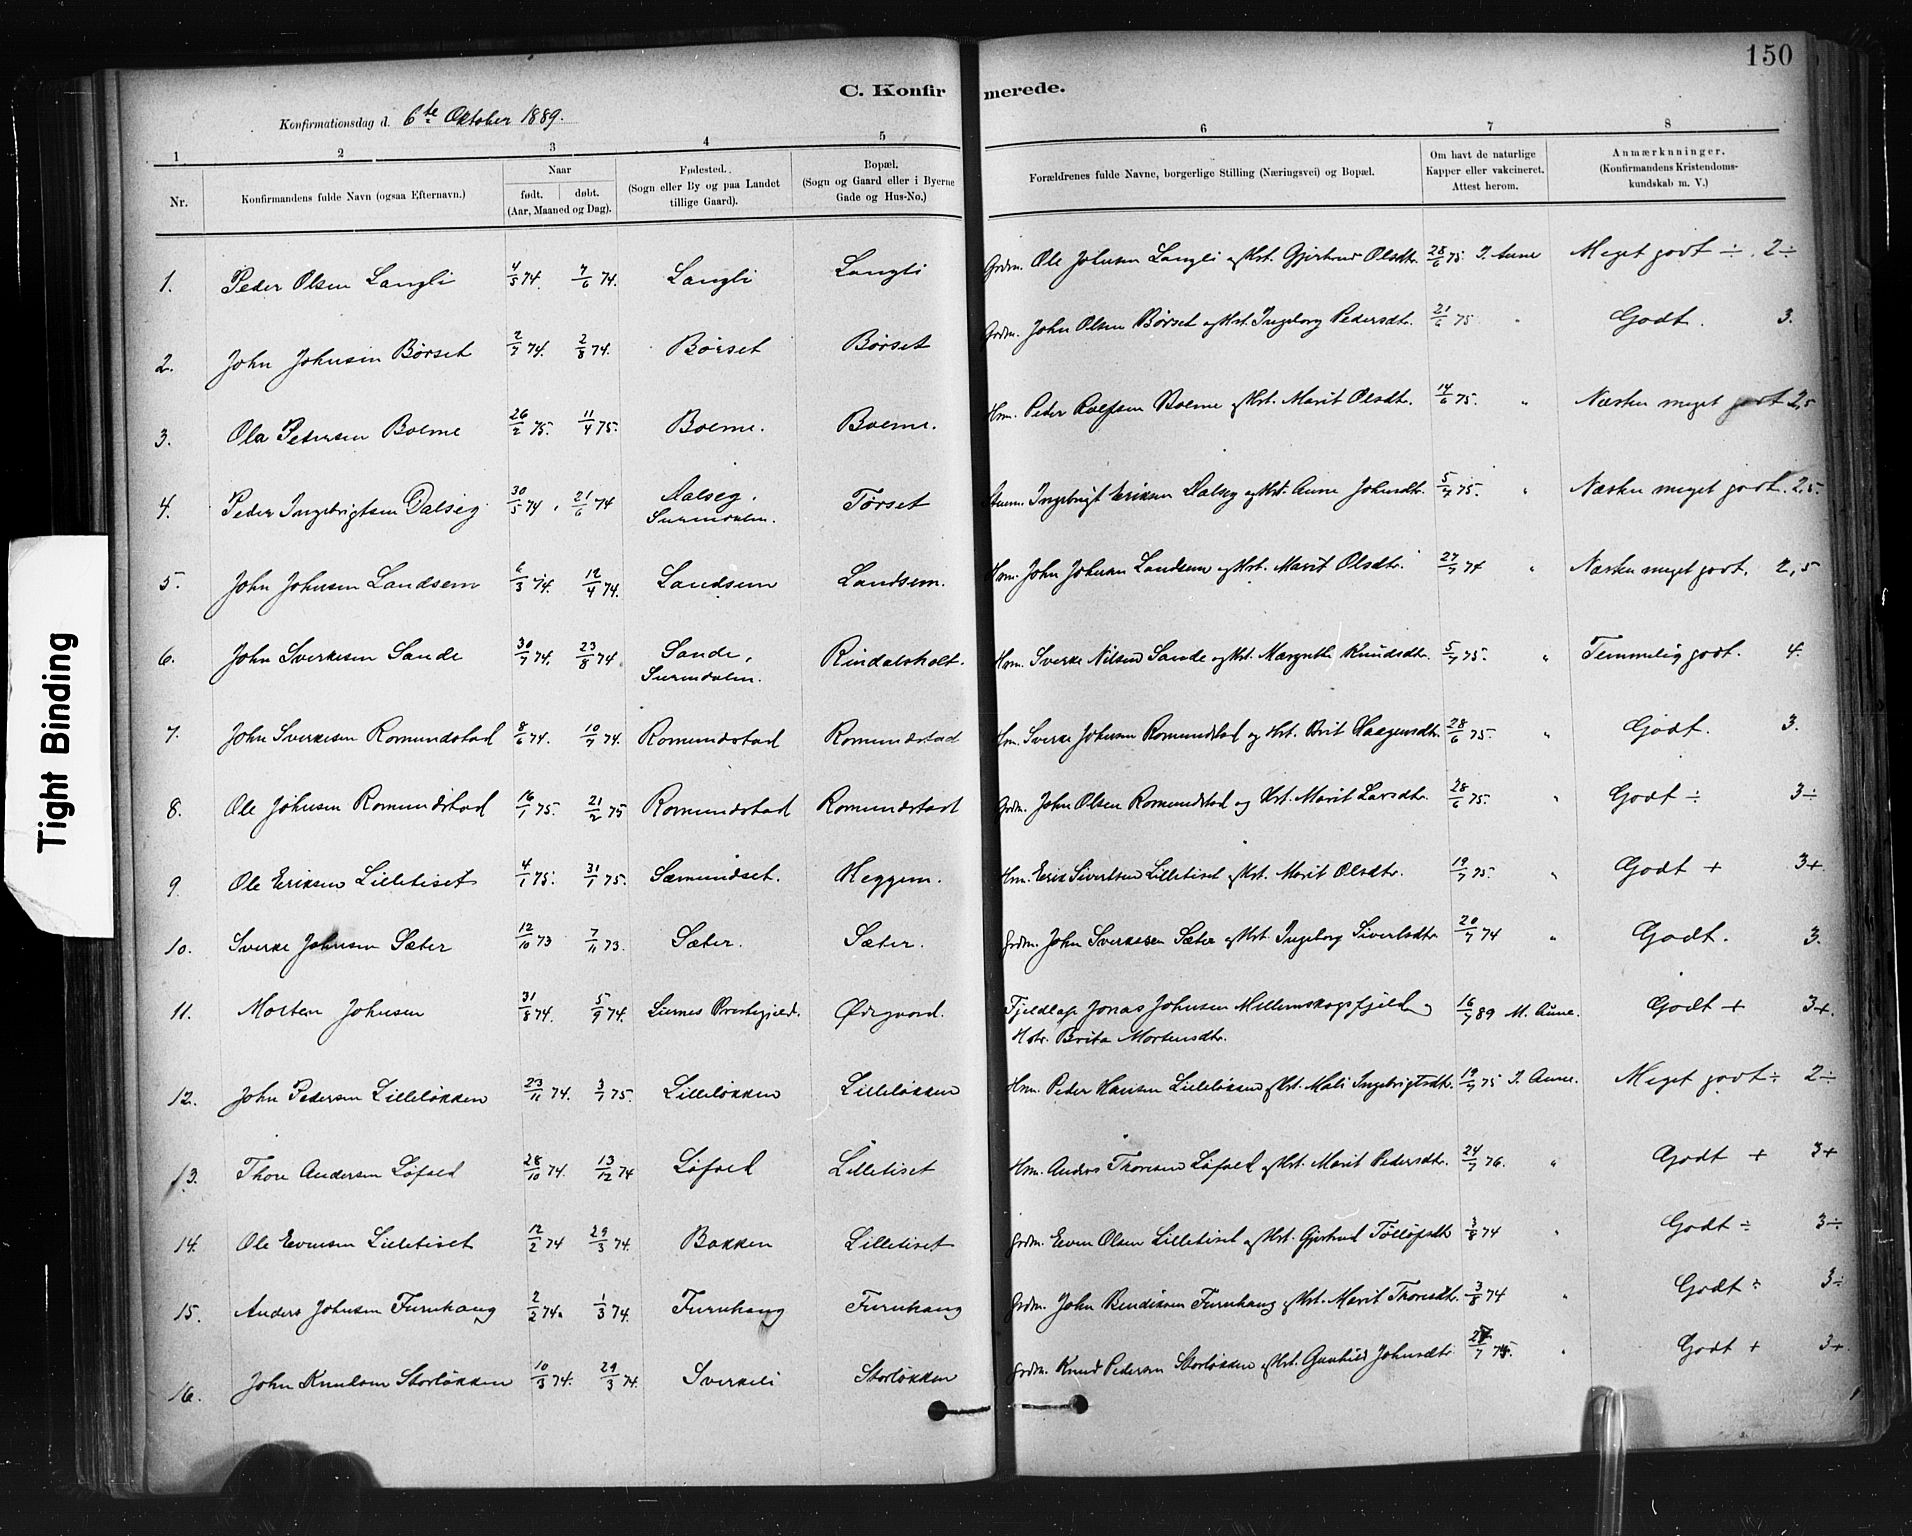 150
C. Konfirmerede.
Konfirmationsdag d. 6te Oktober 1889.
1 2 3 4 5 6 7 8
Nr. Konfirmandens fulde Navn (ogsaa Efternavn.) Naar født. døbt. (Aar, Maaned og Dag). Fødested. (Sogn eller By og paa Landet tillige Gaard). Bopæl. (Sogn og Gaard eller i Byerne Gade og Hus-No.) Forældrenes fulde Navne, borgerlige Stilling (Næringsvei) og Bopæl. Om havt de naturlige Kapper eller vakcineret. Attest herom. Anmærkninger. (Konfirmandens Kristendomskundskab m. V.)
1. Peder Olsen Langli 4/5 74. 7/6 74. Langli Langli Grdm. Ole Johnsen Langli og Hst. Gjertrud Olsdtr. 28/6 75. I. Aune Meget godt ÷. 2÷
2. John Johnsen Børset 2/7 74. 2/8 74. Børset Børset Grdm. John Olsen Børset og Hst. Ingeborg Pedersdtr. 21/6 75 " Godt. 3.
3. Ola Pedersen Bolme 26/2 75. 11/4 75. Bolme. Bolme. Hm. Peder Rolfsen Bolme og Hst. Marit Olsdtr. 14/6 75. " Næsten meget godt 2,5
4. Peder Ingebrigtsen Dalseg 30/5 74. 21/6 74 Dalseg, Surendalen. Tørset Ingebrigt Eriksen Dalseg og Hst. Anne Johnsdtr. 5/7 75. " Næsten meget godt. 2,5.
5. John Johnsen Landsem 6/3 74. 12/4 74. Landsem Landsem. Hm. John Johnsen Landsem og Hst. Marit Olsdtr. 27/7 74 " Næsten meget godt. 2,5
6. John Sverkesen Sande 30/7 74. 23/8 74. Sande, Surendalen. Rindalsholt. Hm. Sverke Nilsen Sande og Hst. Margrethe Knudsdtr. 5/7 75. " Temmelig godt. 4.
7. John Sverkesen Romundstad 8/6 74. 10/7 74. Romundstad Romundstad Hm. Sverke Johnsen Romundstad og Hst. Brit Haagensdtr. 28/6 75. " Godt. 3.
8. Ole Johnsen Romundstad 16/1 75. 21/2 75 Romundstad Romundstad Grdm. John Olsen Romundstad og Hst. Marit Larsdtr. 28/6 75. " Godt ÷ 3÷
9. Ole Eriksen Lilletiset 4/1 75. 31/1 75. Sæmundset. Heggem. Hm. Erik Sivertsen Lilletiset og Hst. Marit Olsdtr. 19/7 75. " Godt + 3+.
10. Sverke Johnsen Sæter 12/10 73 7/11 73. Sæter. Sæter. Grdm. John Sverkesen Sæter og Hst. Ingeborg Sivertsdtr. 20/7 74 " Godt. 3.
11. Morten Johnsen 31/8 74. 5/9 74. Liernes Prestegjeld. Ødegaard. Fjeldlap Jonas Johnsen Mellemskogsfjeld og Hstr. Brita Mortensdtr. 16/7 89 M. Aune. Godt + 3+.
12. John Pedersen Lilleløkken 23/11 74. 3/1 75. Lilleløkken Lilleløkken Hm. Peder Hansen Lilleløkken og Hst. Mali Ingebrigtsdtr. 19/7 75 I. Aune. Meget godt ÷ 2÷
13. Thore Andersen Løfald 28/10 74. 13/12 74 Løfald Lilletiset Hm. Anders Thoresen Løfald og Hst. Marit Pedersdtr. 24/7 76. " Godt + 3+
14. Ole Evensen Lilletiset 12/2 74 29/3 74. Bakken Lilletiset Grdm. Even Olsen Lilletiset og Hst. Gjertrud Tølløfsdtr 3/8 74 " Godt ÷ 3÷
15. Anders Johnsen Furuhaug 2/2 74. 1/3 74. Furuhaug Furuhaug Grdm. John Bendiksen Furuhaug og Hst. Marit Thoresdtr. 3/8 74 " Godt ÷ 3÷
16. John Knudsen Storløkken 10/3 74. 29/3 74. Sverkeli Storløkken Grdm. Knud Pedersen Storløkken og Hst. Gunhild Johnsdtr. 27/7 75. " Godt + 3+.
Tight Binding